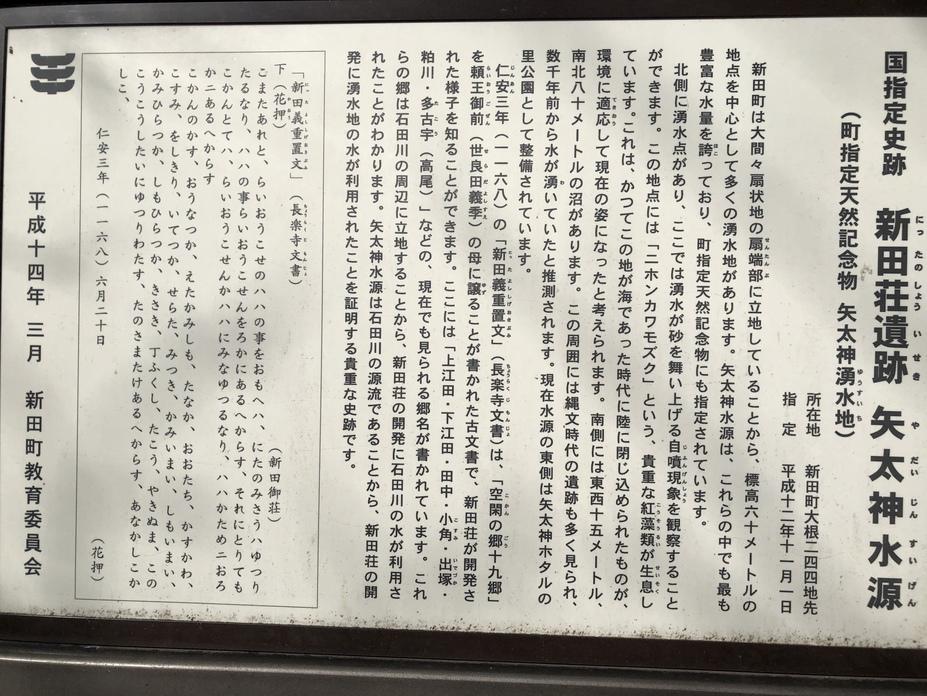 国指定史跡 新田荘遺跡 矢太神水源
にったのしょう いせき やだいじんすいげん
(町指定天然記念物 矢太神湧水地)
ゆうすいち
所在地 新田町大根二四四地先
指 定 平成十二年十一月一日
新田町は大間々扇状地の扇端部に立地していることから、標高六十メートルの
地点を中心として多くの湧水地があります。矢太神水源は、これらの中でも最も
豊富な水量を誇っており、町指定天然記念物にも指定されています。
北側に湧水点があり、ここでは湧水が砂を舞い上げる自噴現象を観察すること
ができます。この地点には「ニホンカワモズク」という、貴重な紅藻類が生息し
ています。これは、かつてこの地が海であった時代に陸に閉じ込められたものが、
環境に適応して現在の姿になったと考えられます。南側には東西十五メートル、
南北八十メートルの沼があります。この周囲には縄文時代の遺跡も多く見られ、
数千年前から水が湧いていたと推測されます。現在水源の東側は矢太神ホタルの
里公園として整備されています。
仁安三年(一一六八)の「新田義重置文」(長楽寺文書)は、「空閑の郷十九郷」
を頼王御前(世良田義季)の母に譲ることが書かれた古文書で、新田荘が開発さ
れた様子を知ることができます。ここには「上江田・下江田・田中・小角・出塚・
粕川・多古宇(高尾)」などの、現在でも見られる郷名が書かれています。これ
らの郷は石田川の周辺に立地することから、新田荘の開発に石田川の水が利用さ
れたことがわかります。矢太神水源は石田川の源流であることから、新田荘の開
発に湧水地の水が利用されたことを証明する貴重な史跡です。
「新田義重置文」(長楽寺文書)
下(花押) (新田御荘)
こまたあれと、らいおうこせのハハの事をおもへハ、にたのみさうハゆつり
たるなり、ハハの事らいおうこせんをろかにあるへからす、それにとりても
こかんとてハ、らいおうこせんかハハにみなゆつるなり、ハハかためニおろ
かニあるへからす
こかんのかす、おうなつか、えたかみしも、たなか、おおたち、かすかわ、
こすみ、をしきり、いてつか、せらた、みつき、かみいまい、しもいまい、
かみひらつか、しもひらつか、きさき、丁ふくし、たこう、やきぬま、この
こうこうしたいにゆつりわたす、たのさまたけあるへからす、あなかしこか
しこ、
仁安三年(一一六八)六月二十日 (花押)
平成十四年 三月 新田町教育委員会